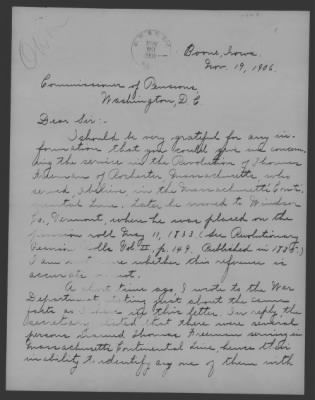 Boone, Iowa.
Nov. 19, 1906.
Commissioner of Pensions,
Washington, D C
Dear Sir:-
I should be very grateful for any in-
formation that you could give me concern-
ing the service in the Revolution of Thomas
Freeman of Rochester Massachusetts who
served in the Massachusetts Conti-
nental Line. Later he moved to Windsor
Co., Vermont, where he was placed on the
pension roll May 11, 1833 (See Revolutionary
Pension Rolls Vol. II, p. 149. Published in 1835.)
I am not sure whether this reference is
accurate or not.
A short time ago, I wrote to the War
Department, stating just about the same
facts as I have in this letter. In reply, the
secretary stated that there were several
persons named Thomas Freeman serving in
Massachusetts Continental Line, hence their
inability to identify any one of them with